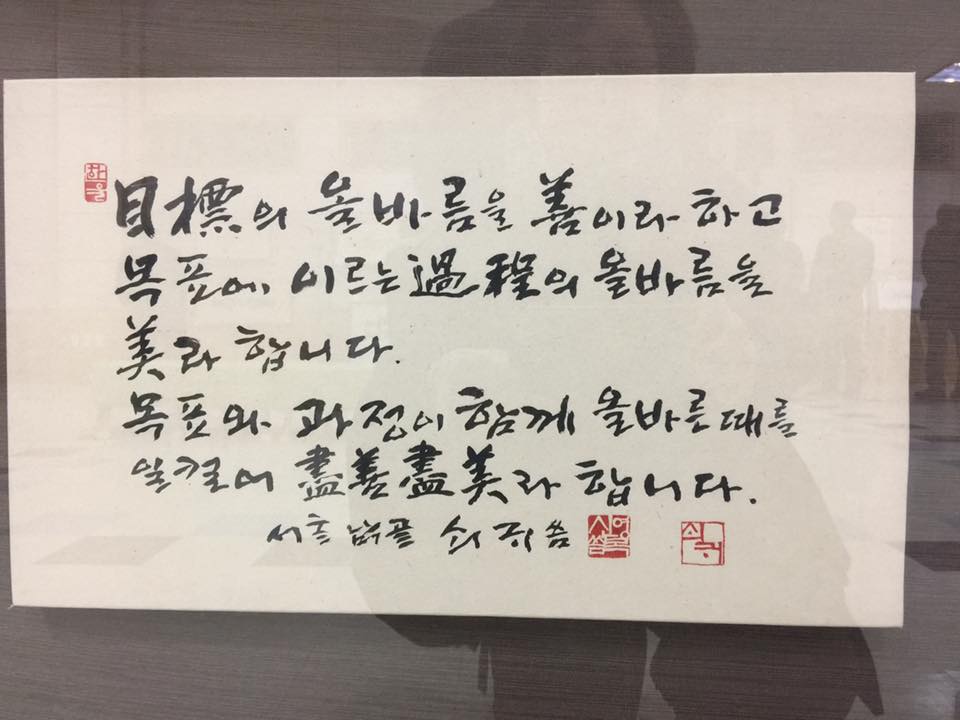 目標의 올바름을 善이라 하고
목표에 이르는 過程의 올바름을
美라 합니다.
목표와 과정이 함께 올바른 때를
일컬어 盡善盡美라 합니다.
쇠귀 씀
쇠귀